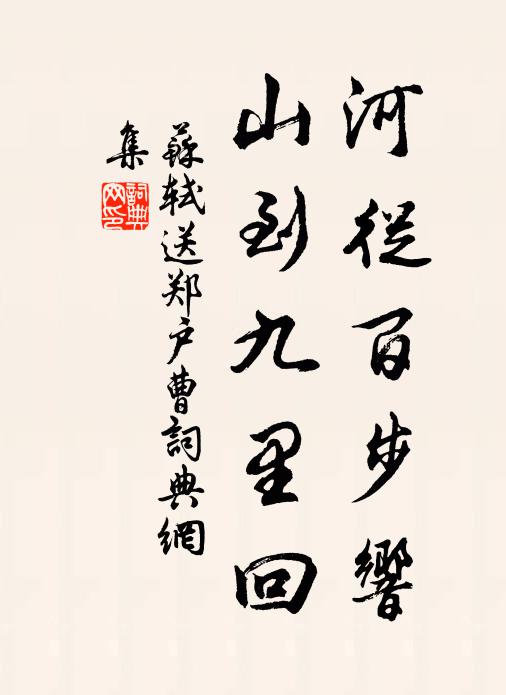 河從百步響
山到九里回
蘇軾送郑户曹詞典網
集
詞典
网印